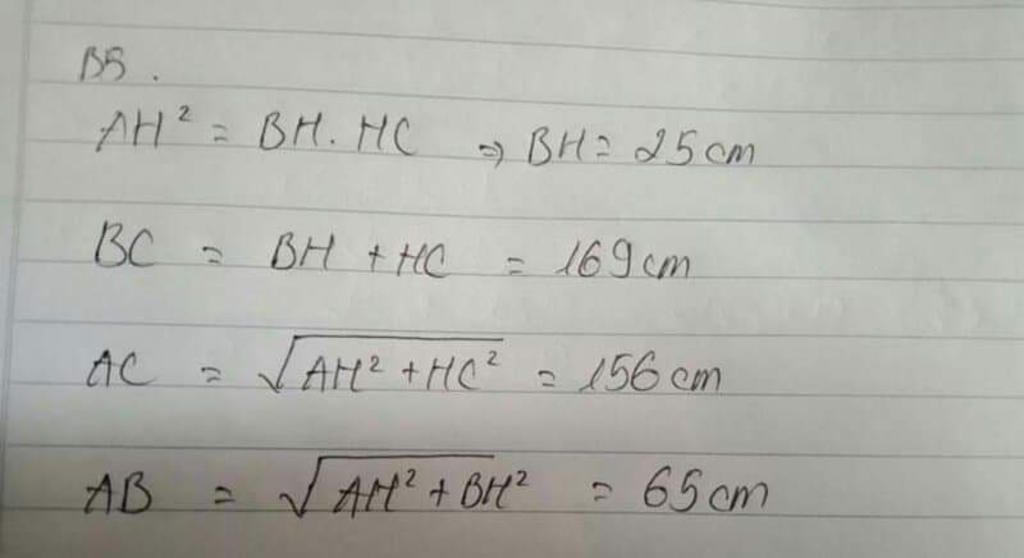 B5.
AH² = BH. HC ⇒ BH = 25cm
BC = BH + HC = 169cm
AC = √AH² + HC² = 156cm
AB = √AH² + BH² = 65cm